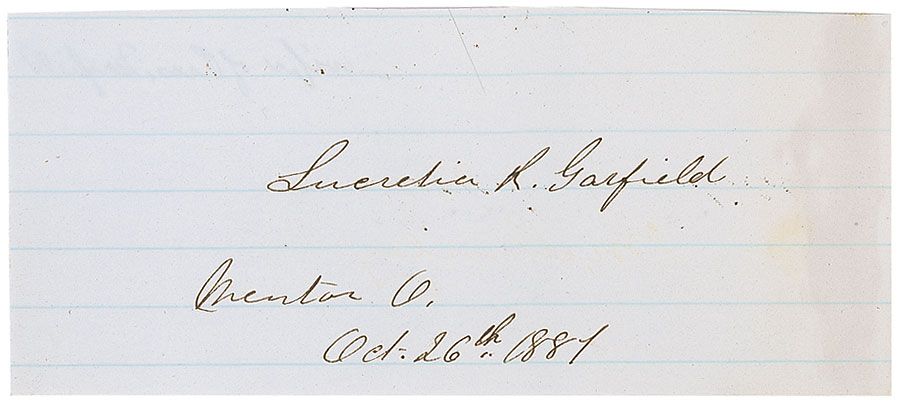 Lucretia R. Garfield
Mentor O.
Oct. 26th 1881